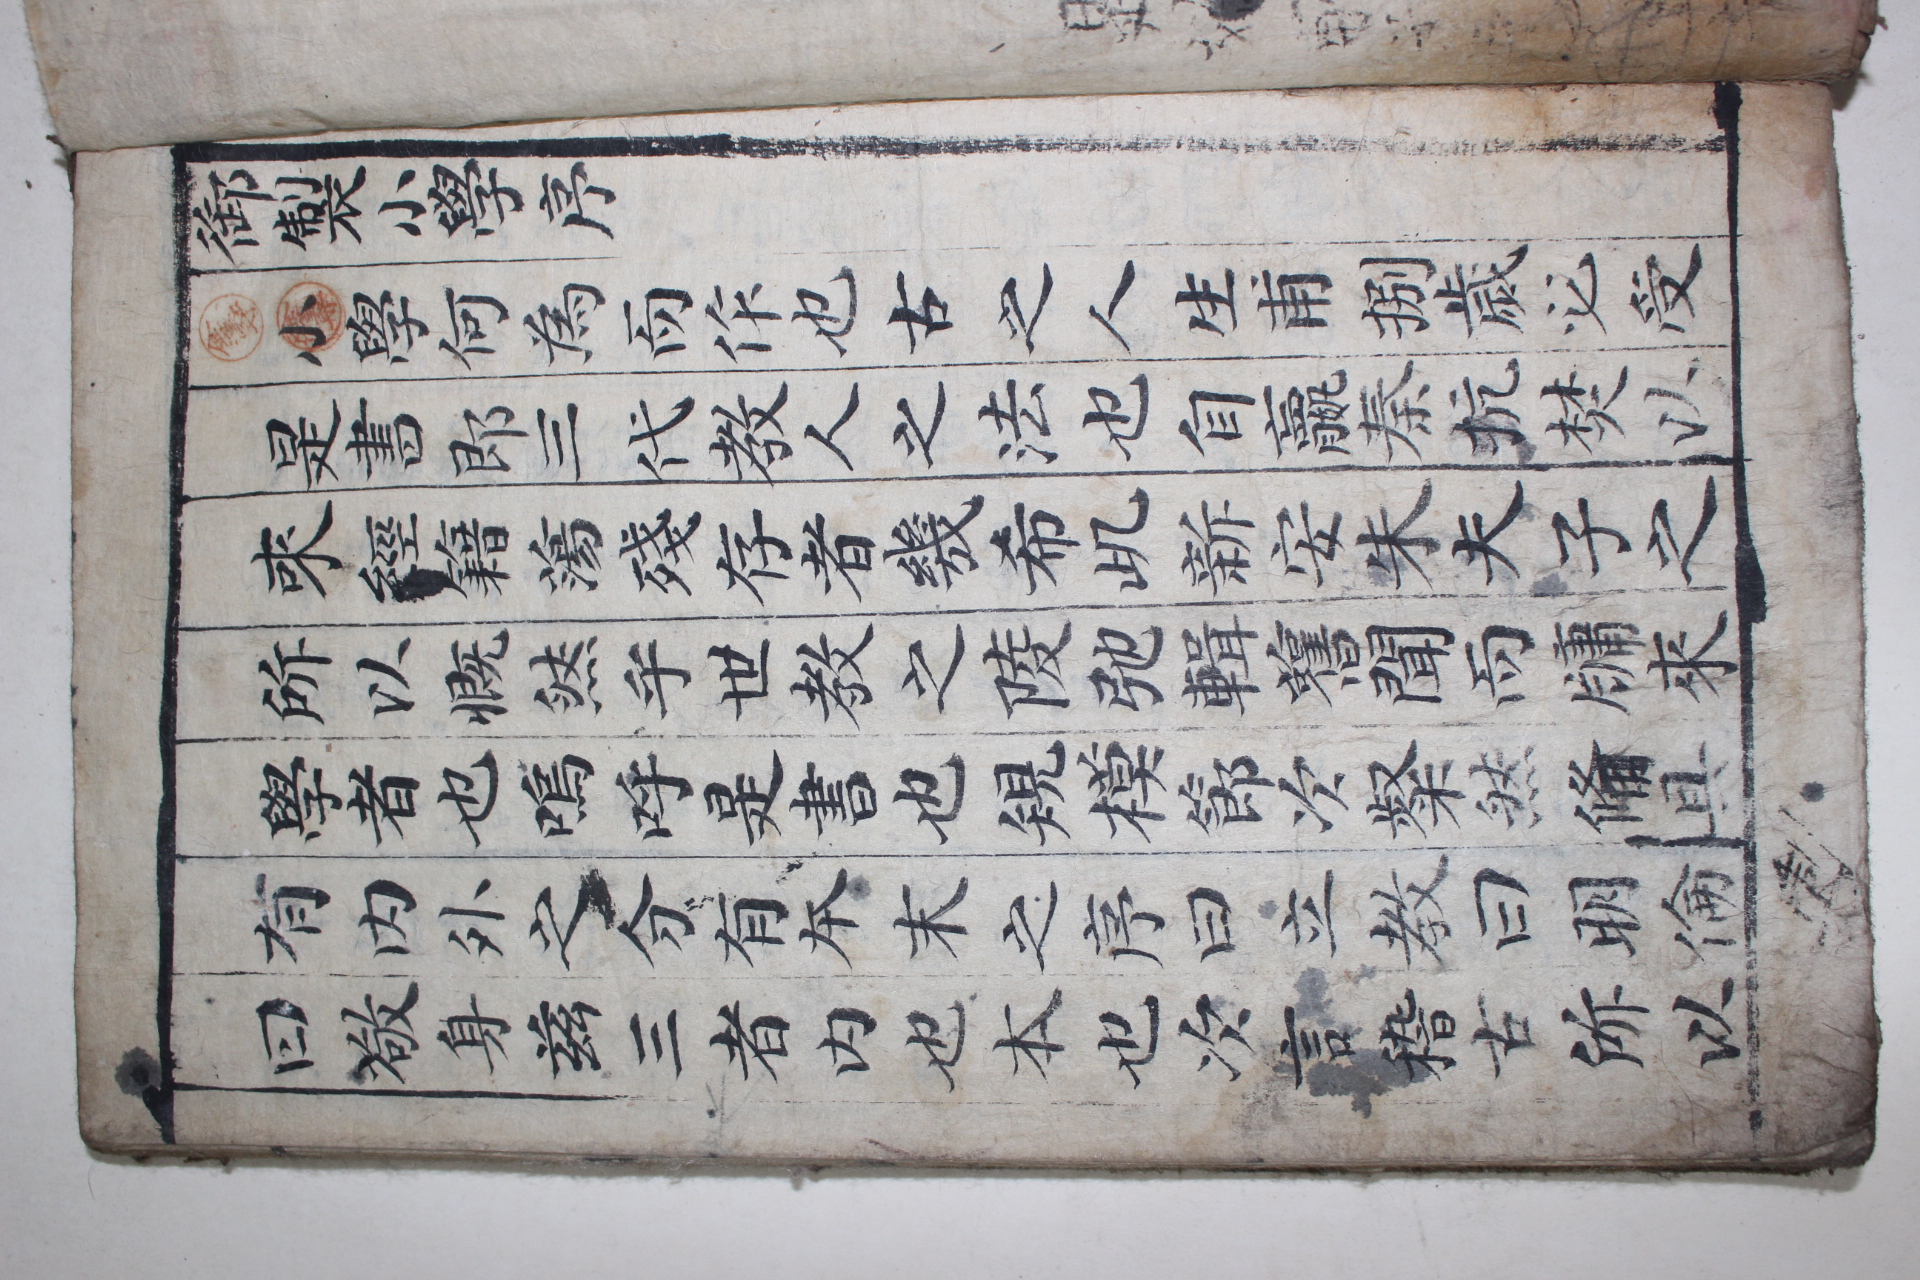 御製小學序
小學何為而作也古之人生甫捌歲必受
是書即三代教人之法也自嬴秦抗焚以
來經籍蕩殘存者幾希此新安朱夫子之
所以慨然乎世教之陵弛輯舊聞而牖來
學者也嗚呼是書也規模節次粲然備具
有內外之分有本末之序曰立教曰明倫
曰敬身茲三者內也本也次言稽古所以